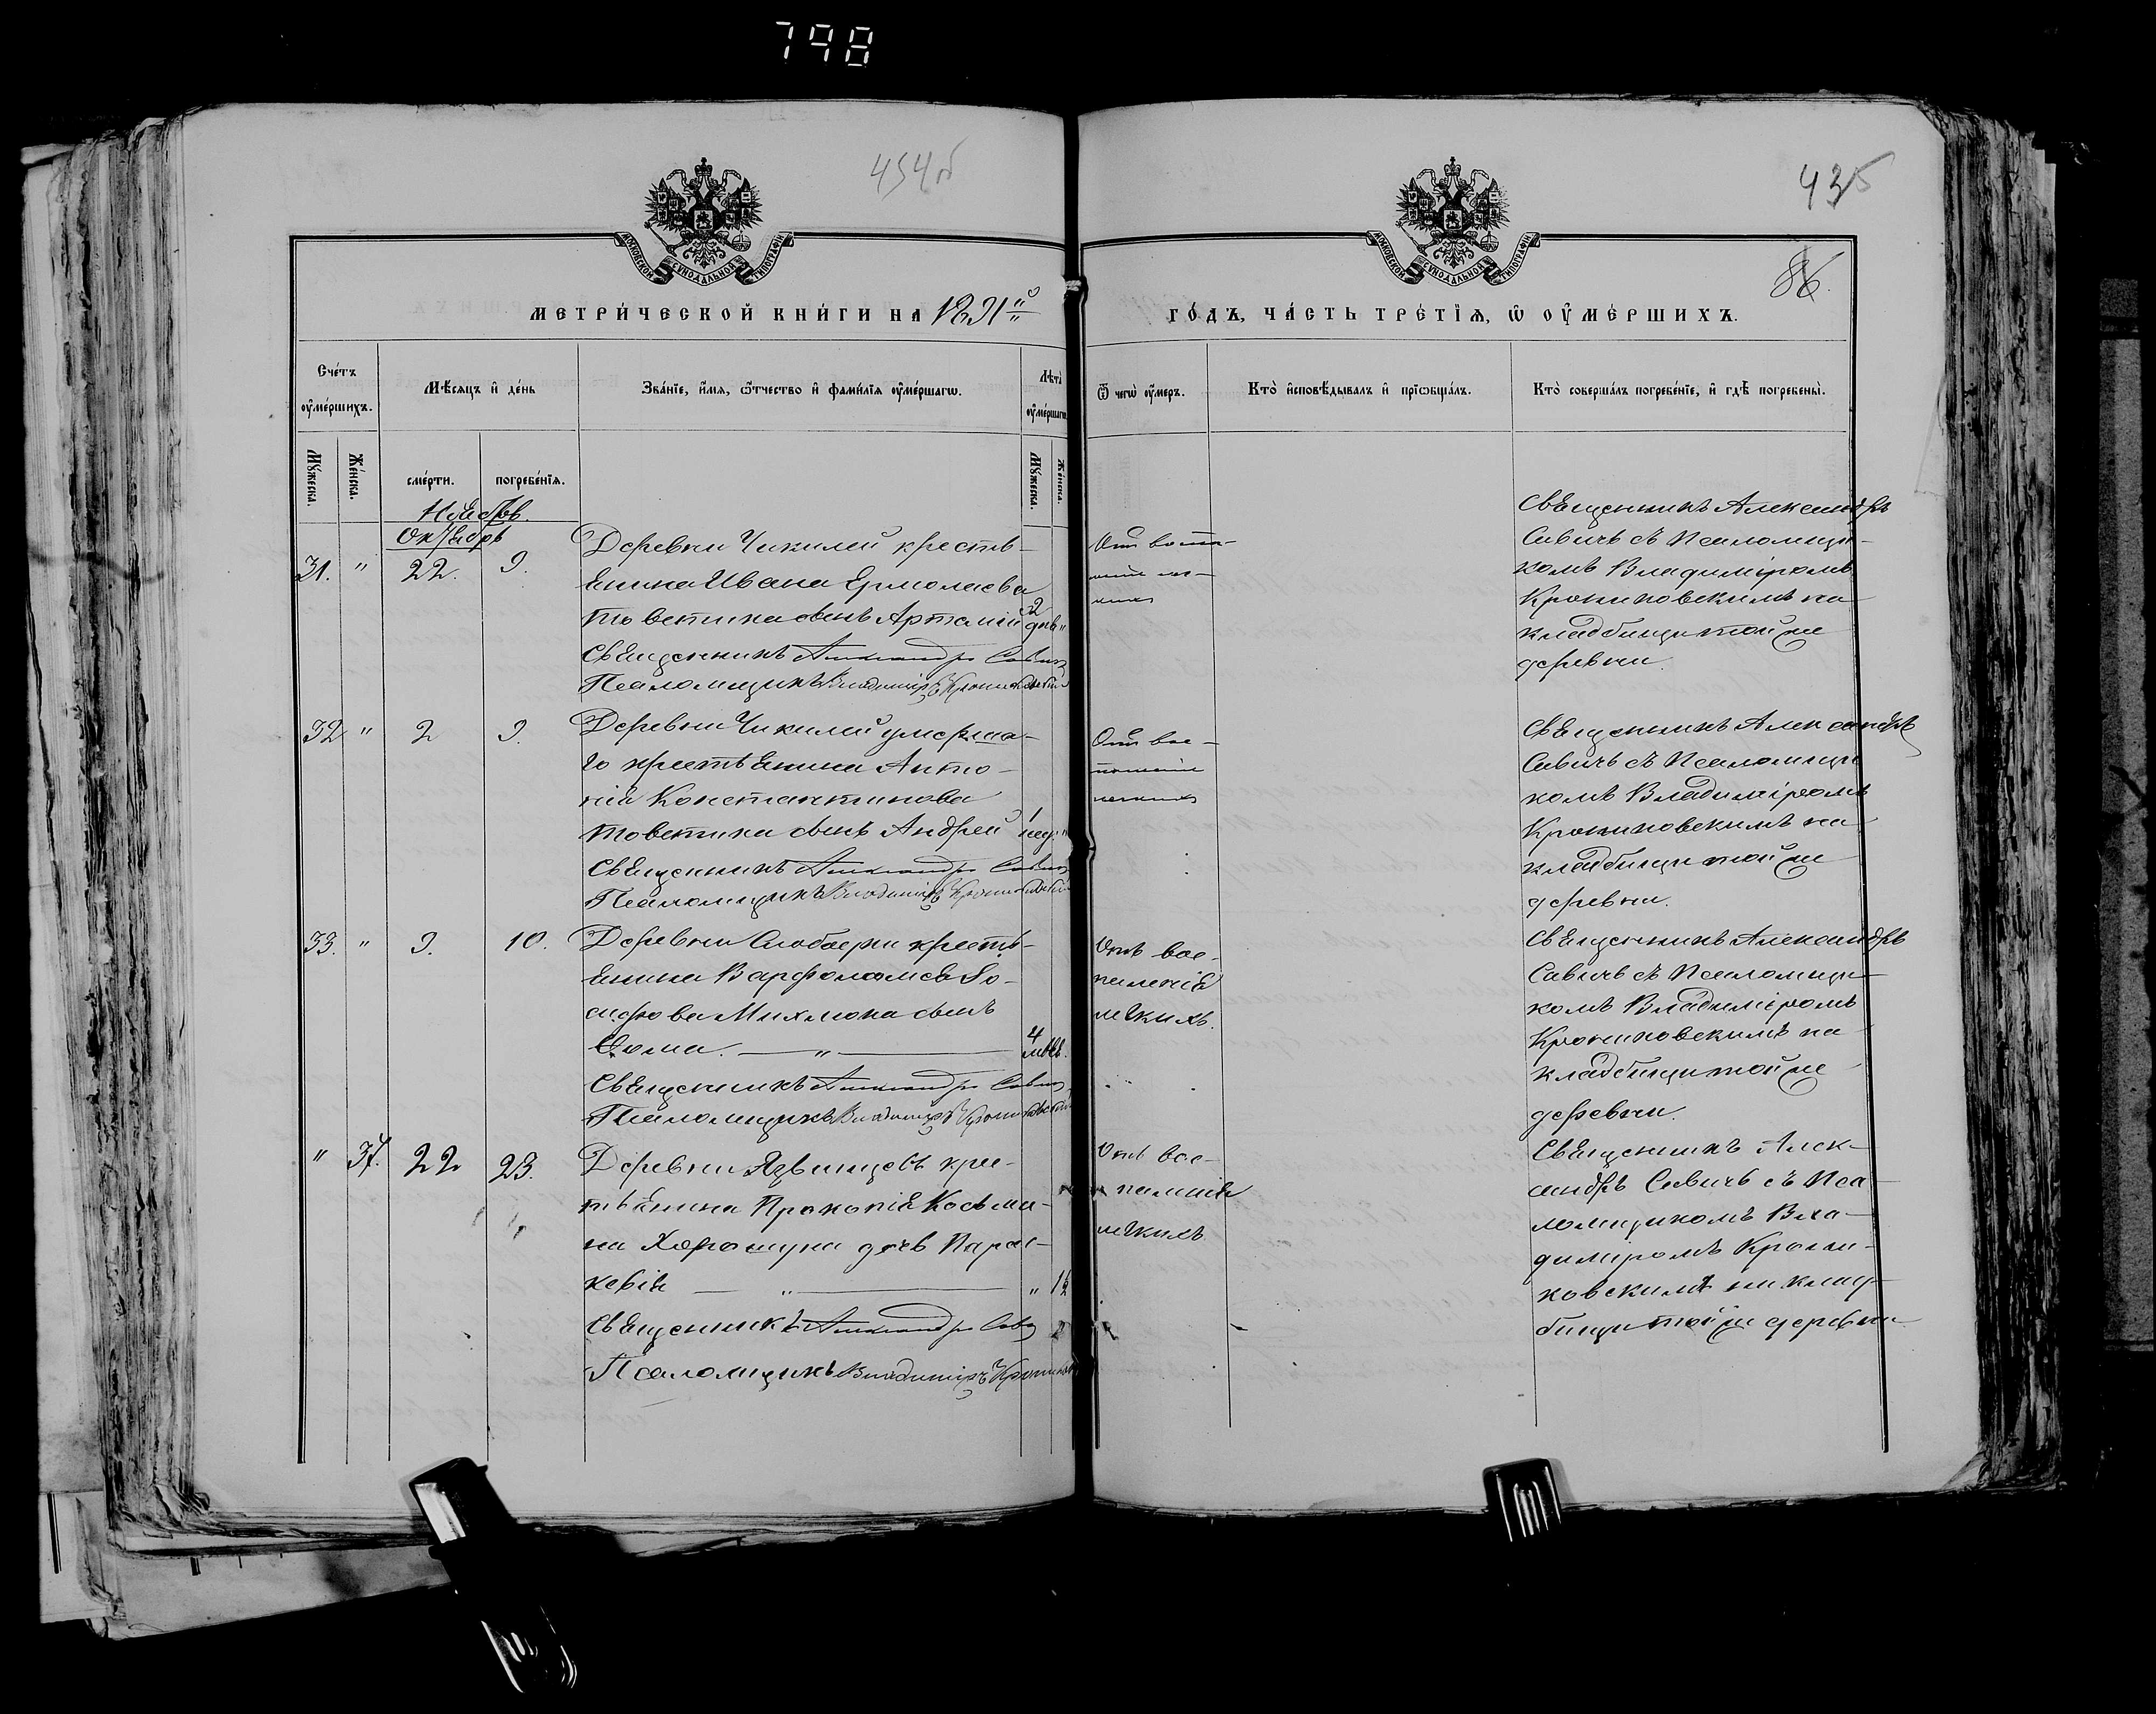 798
454об
435
86.
МОСКОВСКОЙ СѴНОДАЛЬНОЙ ТИПОГРАФІИ
МОСКОВСКОЙ СѴНОДАЛЬНОЙ ТИПОГРАФІИ
МЕТРИ́ЧЕСКОЙ КНИ́ГИ НА 1891й
ГО́ДЪ, ЧА́СТЬ ТРЕ́ТІѦ, Ѡ ОУМЕ́РШИХЪ.
Сче́тъ оуме́ршихъ.
Мѣ́сяцъ и҆ де́нь
Зва́нїе, и҆́мя, ѻ҆́тчество и҆ фами́лїя оуме́ршагѡ.
Лѣ́та оуме́ршагѡ
Ѿ чегѡ̀ оу́меръ.
Кто̀ и҆сповѣ́дывалъ и҆ прїѡбща́лъ.
Кто̀ соверша́лъ погребе́нїе, и҆ гдѣ̀ погребены̀.
Мꙋ́жеска.
Же́нска.
сме́рти.
погребе́нїя.
Мꙋ́жеска.
Же́нска.
Ноябрь.
Октябрь
31. " 22. 9.
Деревни Чикилей кресть-
янина Ивана Ермолаева
Товстика сынъ Артемій
дн. "
Священникъ Александръ Савичъ
Псаломщикъ Владиміръ Крониковскій
Отъ воспа-
ленія ле-
гкихъ
Священникъ Александръ
Савичъ съ Псаломщи-
комъ Владиміромъ
Крониковскимъ на
кладбищи той же
деревни.
32 " 2 9.
Деревни Чикилей умерша-
го крестьянина Анто-
нія Константинова
Товстика сынъ Андрей
1 нед. "
Священникъ Александръ Савичъ
Псаломщикъ Владиміръ Крониковскій
Отъ вос-
паленія
легкихъ
Священникъ Александръ
Савичъ съ Псаломщи
комъ Владиміромъ
Крониковскимъ на
кладбищи той же
деревни.
33. " 9. 10.
Деревни Слободки кресть-
янина Варфоломея Іо-
сифова Михнюка сынъ
Ѳома. — " —
4 лѣтъ.
Священникъ Александръ Савичъ
Псаломщикъ Владиміръ Крониковскій
Отъ вос-
паленія
легкихъ.
Священникъ Александръ
Савичъ съ Псаломщи-
комъ Владиміромъ
Крониковскимъ на
кладбищи той же
деревни.
" 37. 22 23.
Деревни Язвинцевъ крес-
тьянина Прокопія Косьми-
на Хорошуна дочь Парас-
кевія — " — "
Священникъ Александръ Савичъ
Псаломщикъ Владиміръ Крониковскій
Отъ вос-
паленія
легкихъ
Священникъ Алек-
сандръ Савичъ съ Пса-
ломщикомъ Вла-
диміромъ Крони-
ковскимъ на клад-
бищи той же деревни